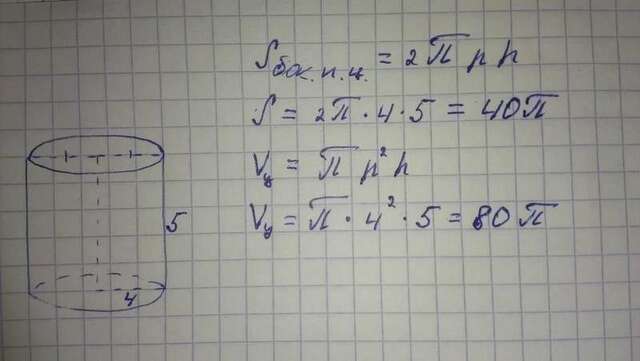 S бок.п.ц. = 2π р h
S = 2π · 4 · 5 = 40π
Vц = π р² h
Vц = π · 4² · 5 = 80π
5
4